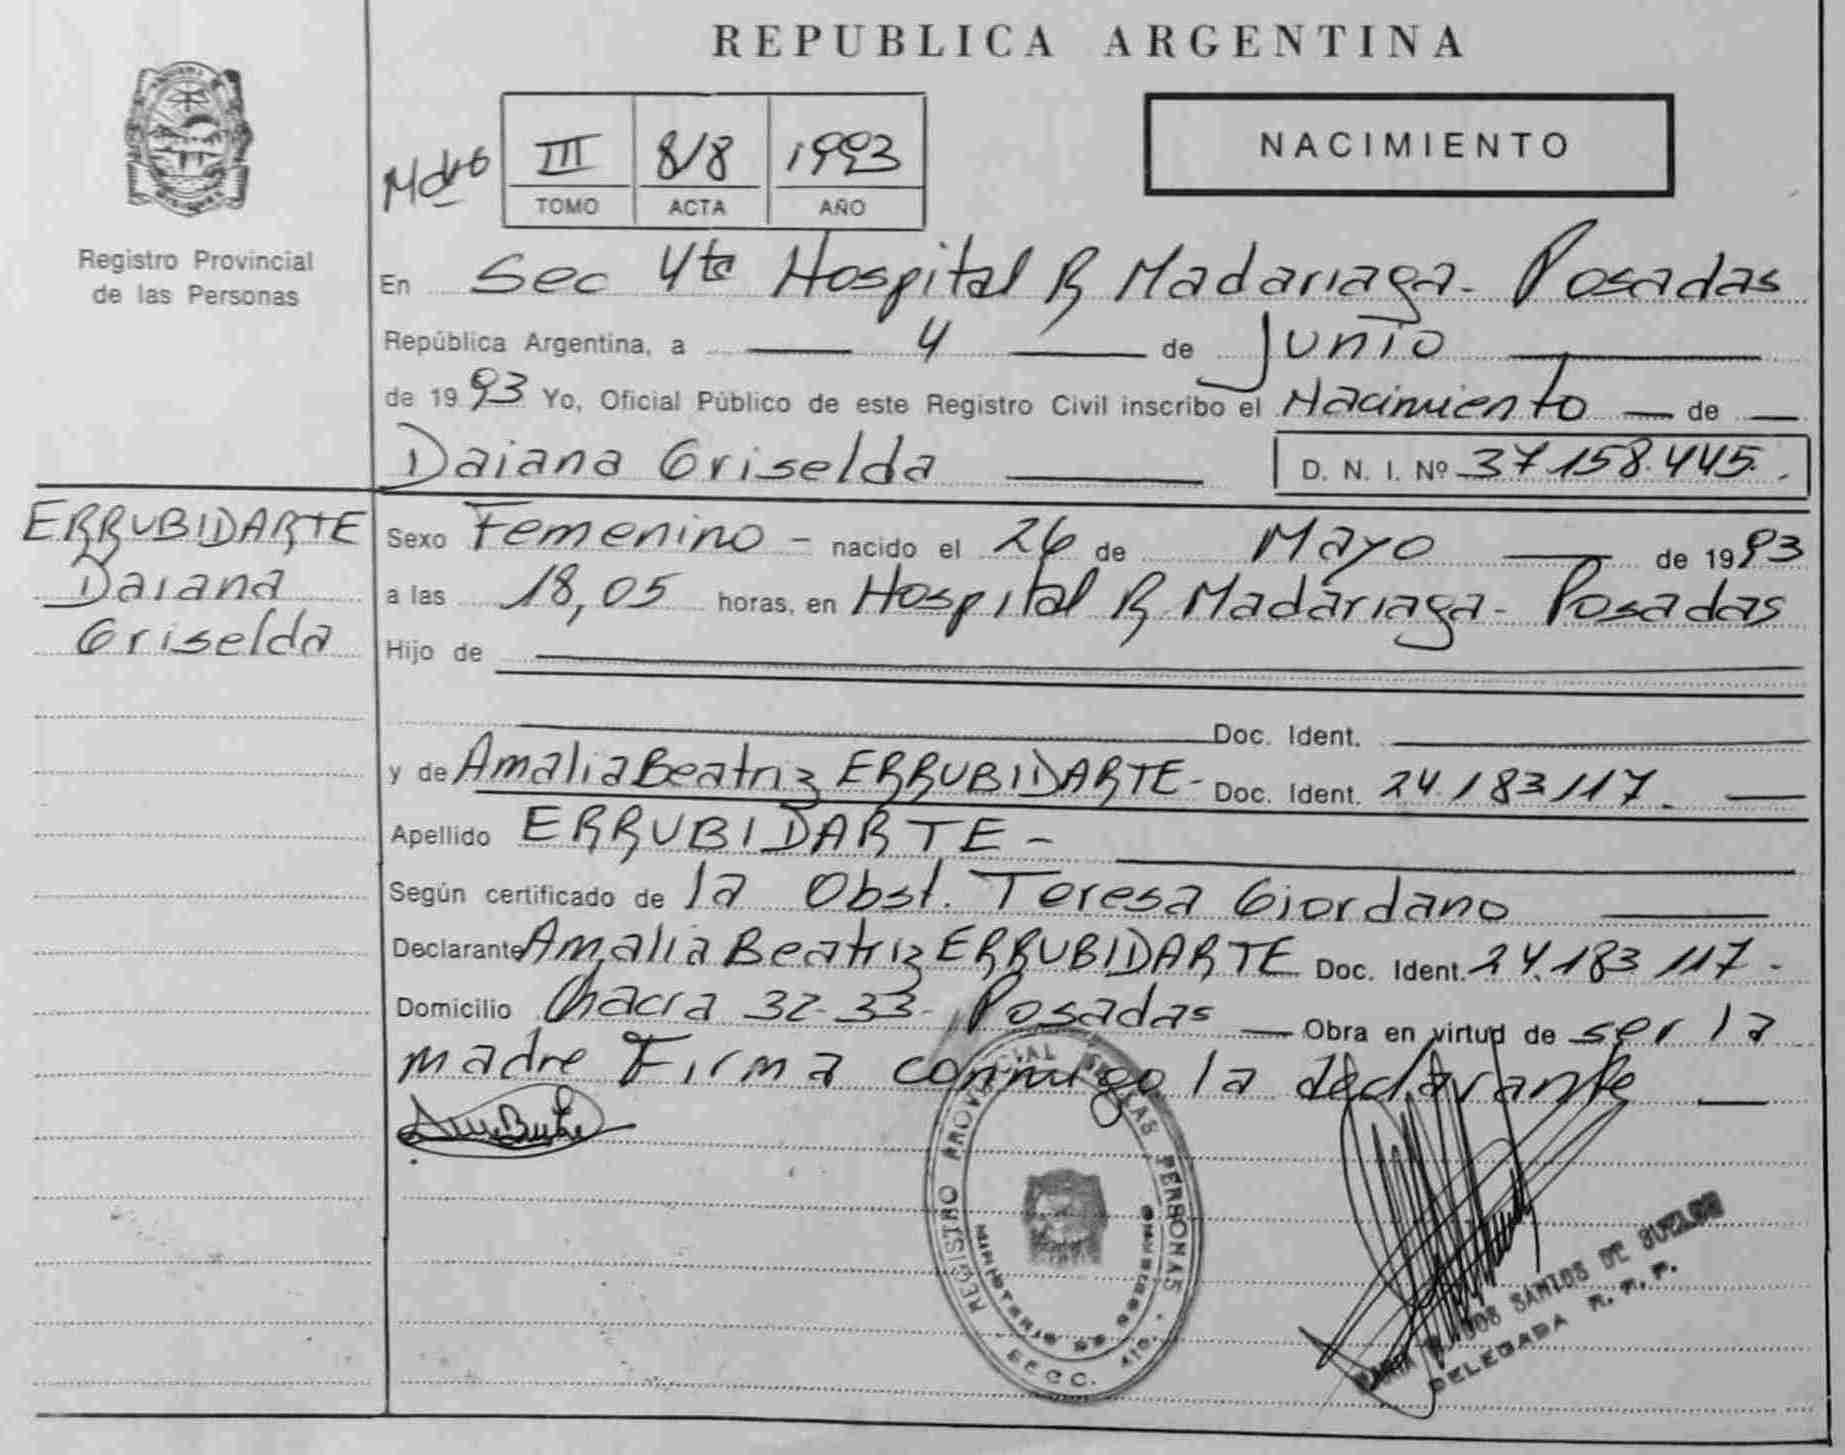 REPUBLICA ARGENTINA
NACIMIENTO
III 818 1993
TOMO ACTA AÑO
Registro Provincial
de las Personas
En Sec 4ta Hospital R Madariaga - Posadas
República Argentina, a 4 de Junio
de 1993 Yo, Oficial Público de este Registro Civil inscribo el Nacimiento de
Daiana Griselda D. N. I. Nº 37.158.445.
ERRUBIDARTE
Daiana
Griselda
Sexo Femenino - nacido el 26 de Mayo de 1993
a las 18,05 horas, en Hospital R. Madariaga - Posadas
Hijo de
Doc. Ident.
y de Amalia Beatriz ERRUBIDARTE - Doc. Ident. 24.183.117.
Apellido ERRUBIDARTE -
Según certificado de la Obst. Teresa Giordano
Declarante Amalia Beatriz ERRUBIDARTE Doc. Ident. 24.183.117 -
Domicilio Chacra 32-33 - Posadas Obra en virtud de ser la
madre Firma conmigo la declarante
REGISTRO PROVINCIAL DE LAS PERSONAS
MINISTERIO DE GOBIERNO
SANTOS DE
DELEGADA R. P. P.